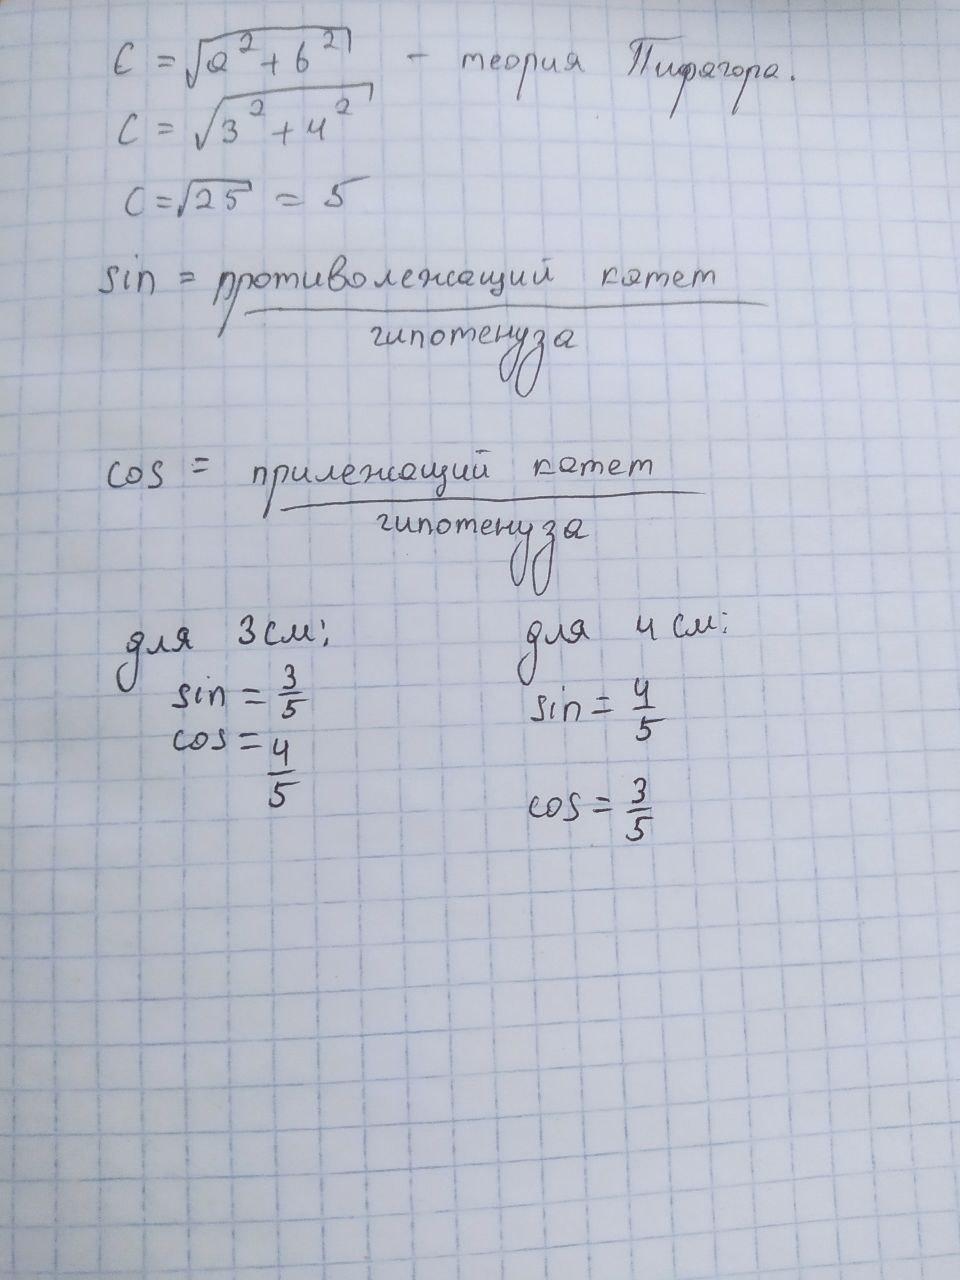 c = √a² + b² - теория Пифагора.
c = √3² + 4²
c = √25 = 5
sin = противолежащий катет
гипотенуза
cos = прилежащий катет
гипотенуза
для 3 см:
sin = 3/5
cos = 4/5
для 4 см:
sin = 4/5
cos = 3/5